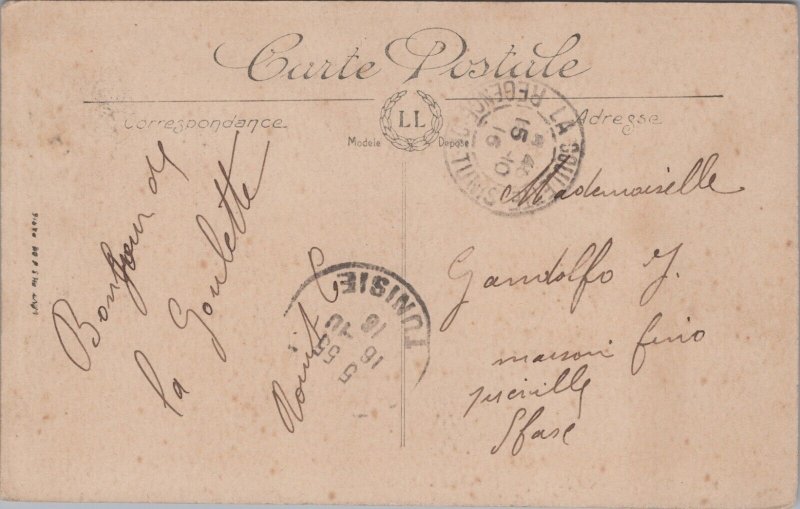 Carte Postale
Correspondance
LL
Modele Depose
Adresse
LA GOULETTE
REGENCE TUNIS
15 -10
16
Bonjour de
la Goulette
TUNISIE
5 55
16 -10
16
Mademoiselle
Gandolfo J.
maison fino
Sfax